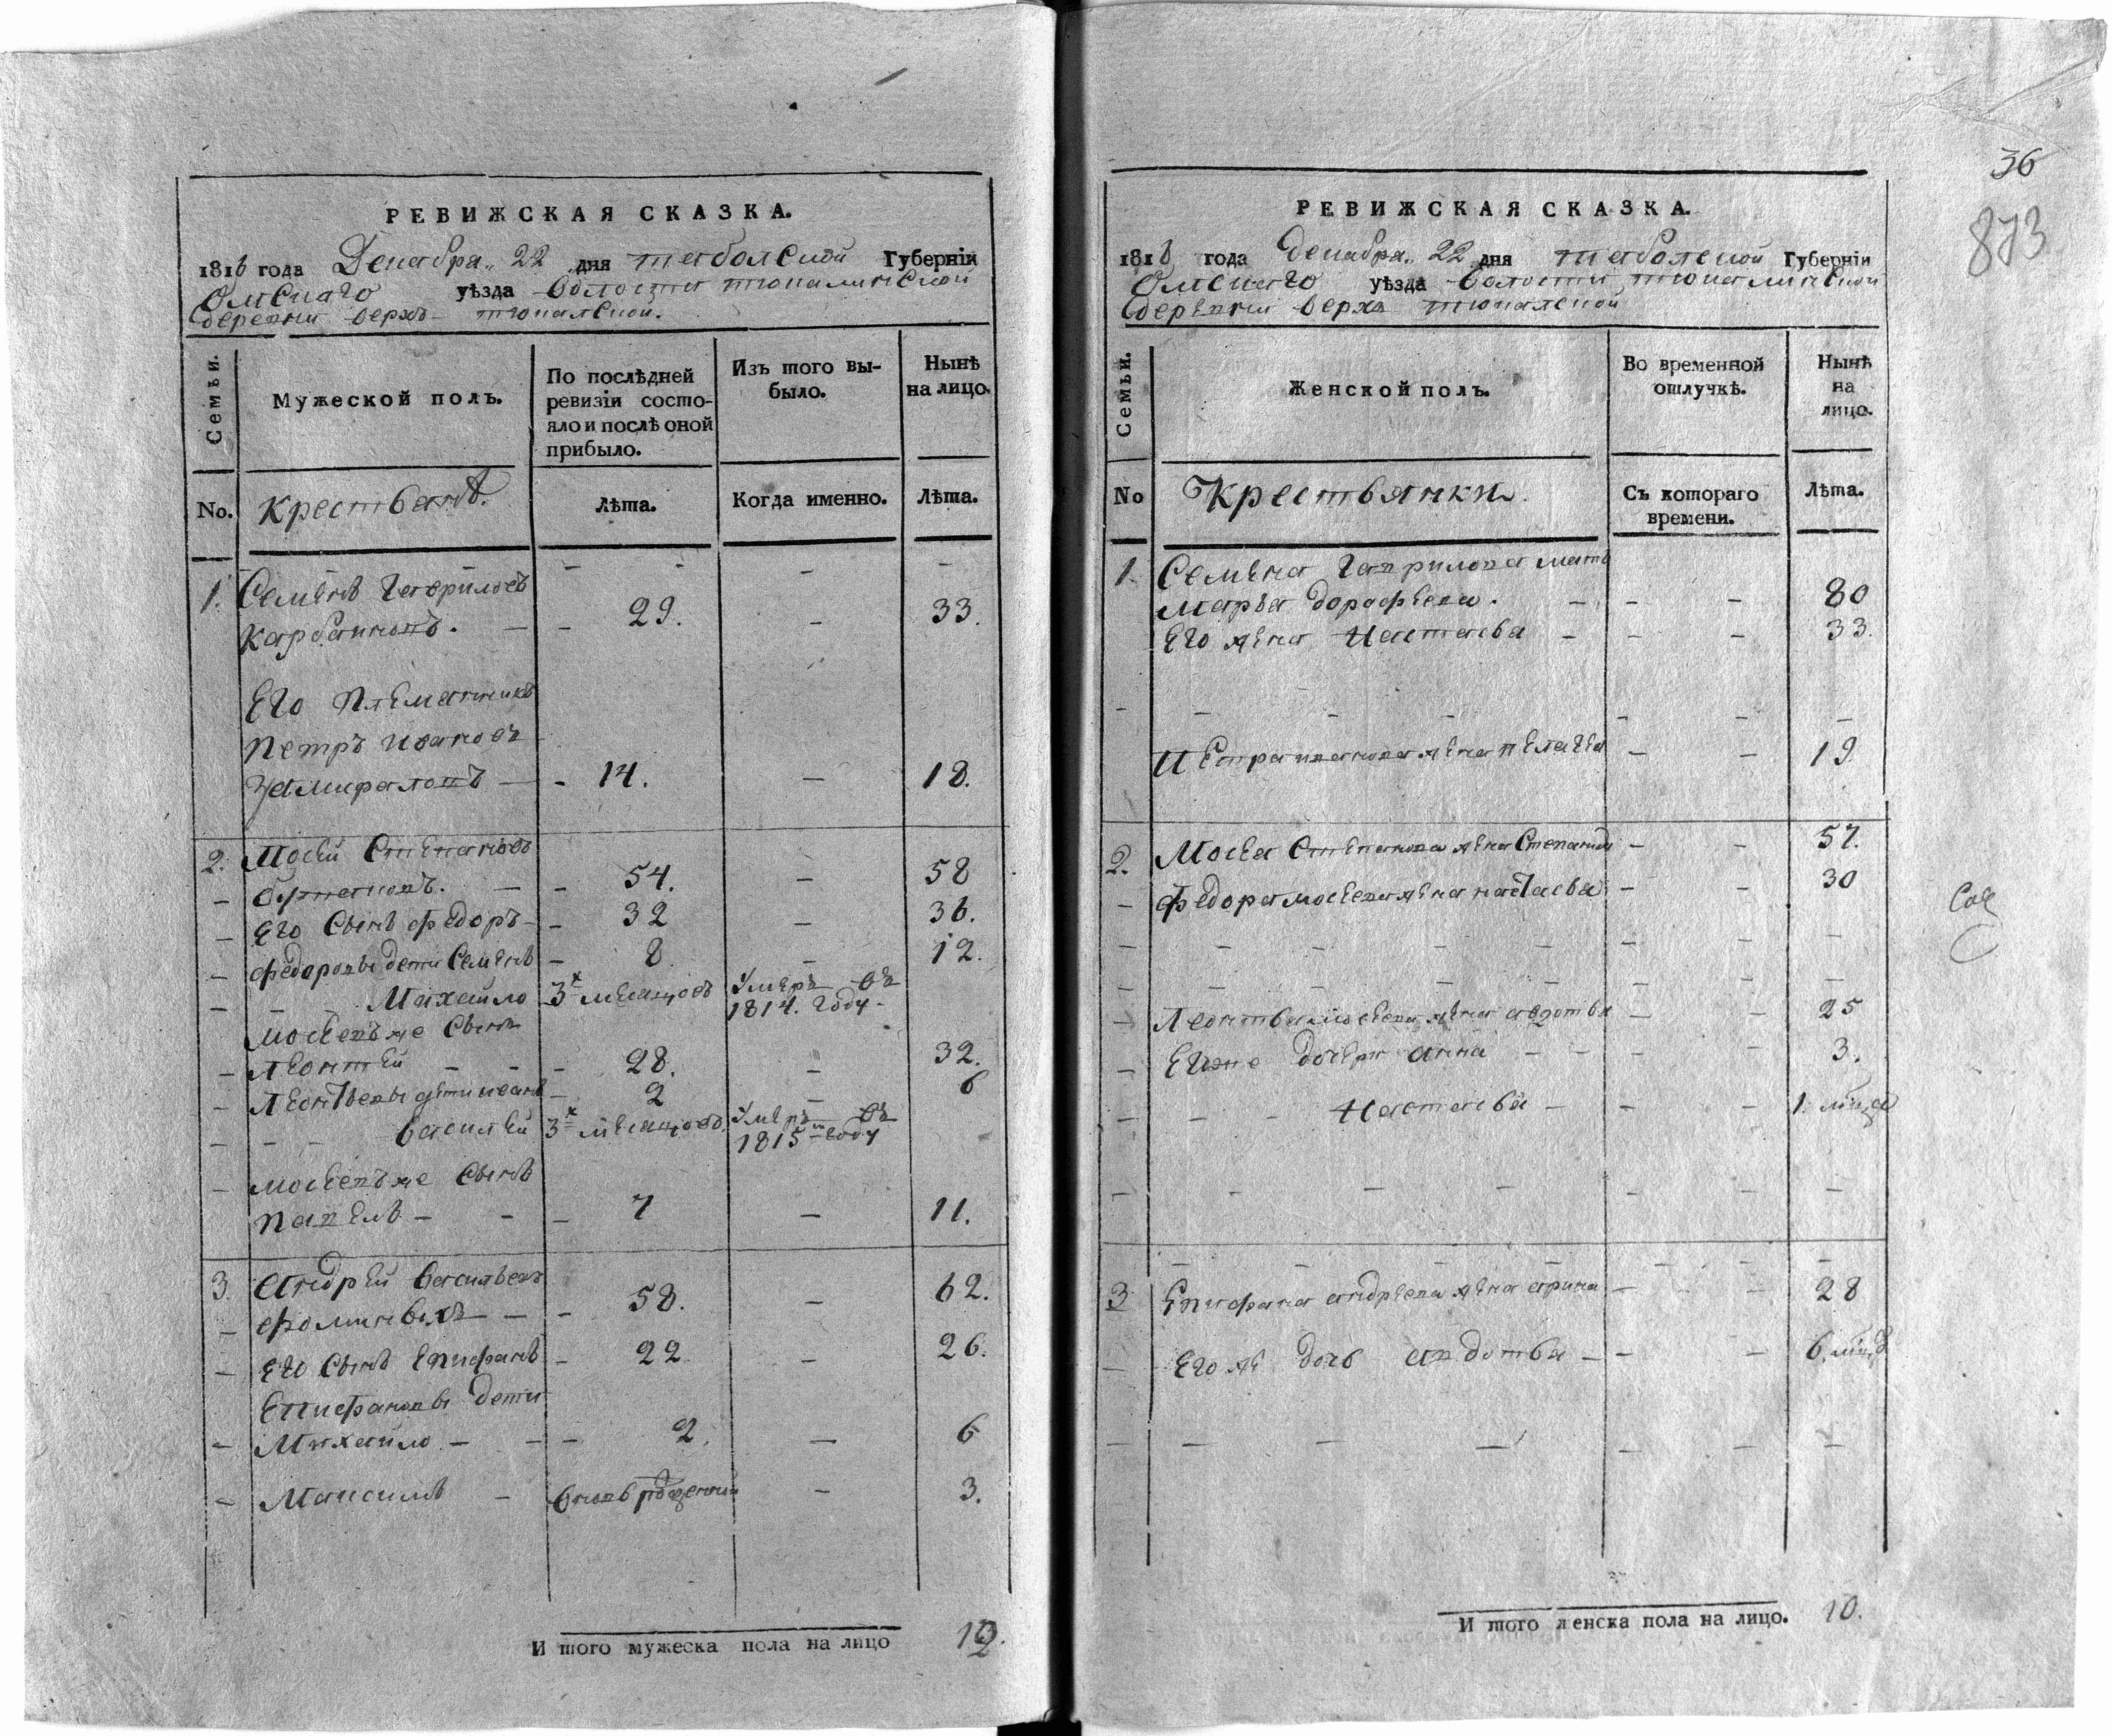 РЕВИЖСКАЯ СКАЗКА.
1816 года Декабря 22 дня тобольской Губерніи
Омскаго уѣзда волости тюкалинской
деревни верхъ тюкалской.
Семьи.
Мужеской полъ.
По послѣдней
ревизіи состо-
яло и послѣ оной
прибыло.
Изъ того вы-
было.
Нынѣ
на лицо.
No. Крестьянъ. Лѣта. Когда именно. Лѣта.
1. Семенъ Гавриловъ
29. 33.
Его племянникъ
Петръ Ивановъ
14. 18.
2. Мосей Степановъ
54. 58
Его сынъ федоръ 32 36.
федоровы дети Семенъ 8 12.
Михайло 3х месяцовъ Умеръ въ
1814. году
Мосеевъ же сынъ
Леонтей 28. 32.
Леонтьевы дети иванъ 2 6
василей 3х месяцовъ Умеръ въ
1815м году
Мосеевъ же сынъ
павелъ 7 11.
3 андрей васильевъ
фоминыхъ 58. 62.
Его сынъ Епифанъ 22 26.
Епифановы дети
Михайло 2. 6
Максимъ вновь рожденной 3.
И того мужеска пола на лицо 12.
36
873
РЕВИЖСКАЯ СКАЗКА.
1816 года декабря 22 дня тобольской Губерніи
Омскаго уѣзда волости тюкалинской
деревни верхъ тюкалской
Семьи.
Женской полъ.
Во временной
отлучкѣ.
Нынѣ
на
лицо.
No Крестьянки. Съ котораго
времени. Лѣта.
1. Семена Гаврилова мать
Марья дорофеева. 80
Его жена Настасья 33.
Петра иванова жена пелагея 19
2. Мосея Степанова жена Степанида 57.
федора мосеева жена настасья 30
Леонтья мосеева жена авдотья 25
Ево же дочери анна 3.
Настасья 1. мца
3 Епифана андреева жена арина 28
Его же дочь авдотья 6. мцъ
И того женска пола на лицо. 10.